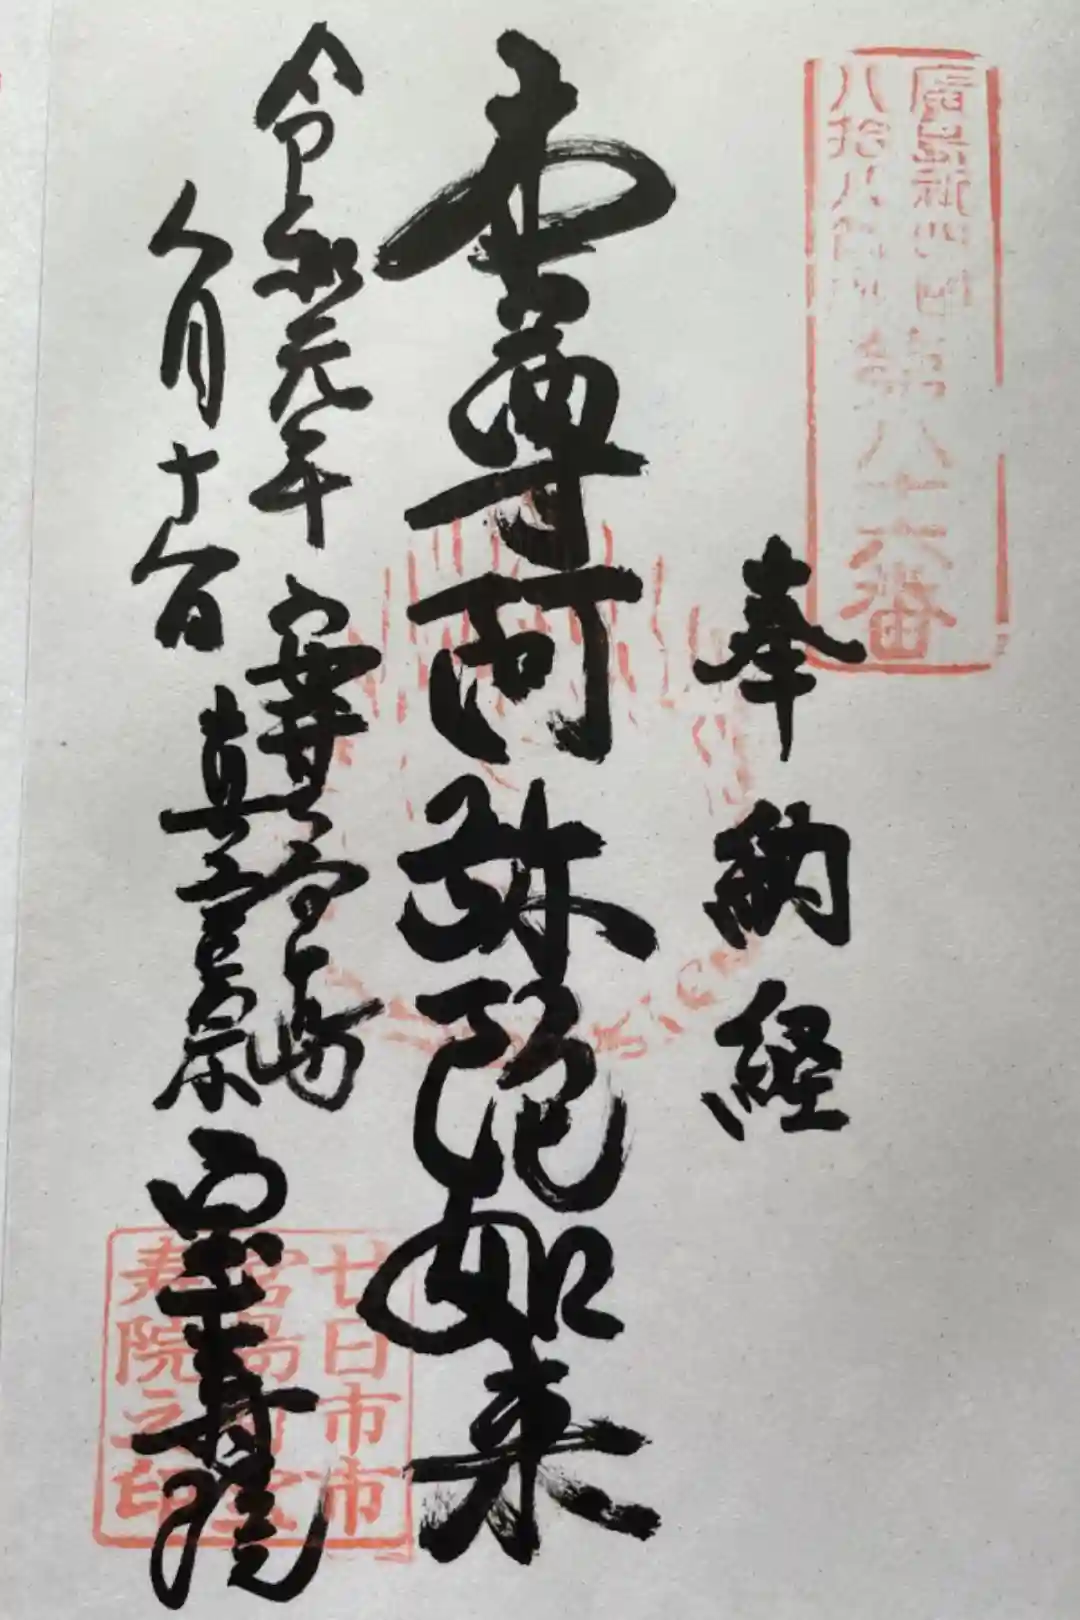 廣島新四国
八拾八ヶ所
第八十六番
奉納経
本尊阿弥陀如来
令和元年
八月十八日
安芸宮嶋
真言宗
宝寿院
廿日市市
宮島町宝
寿院之印